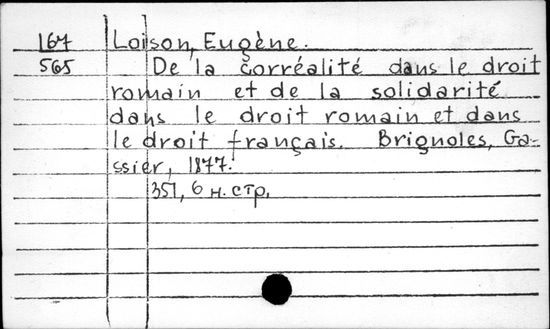 167 Loison, Eugène.
565 De la corréalité dans le droit
romain et de la solidarité
dans le droit romain et dans
le droit français. Brignoles, Ga-
ssier, 1877.
351, 6 н. стр.